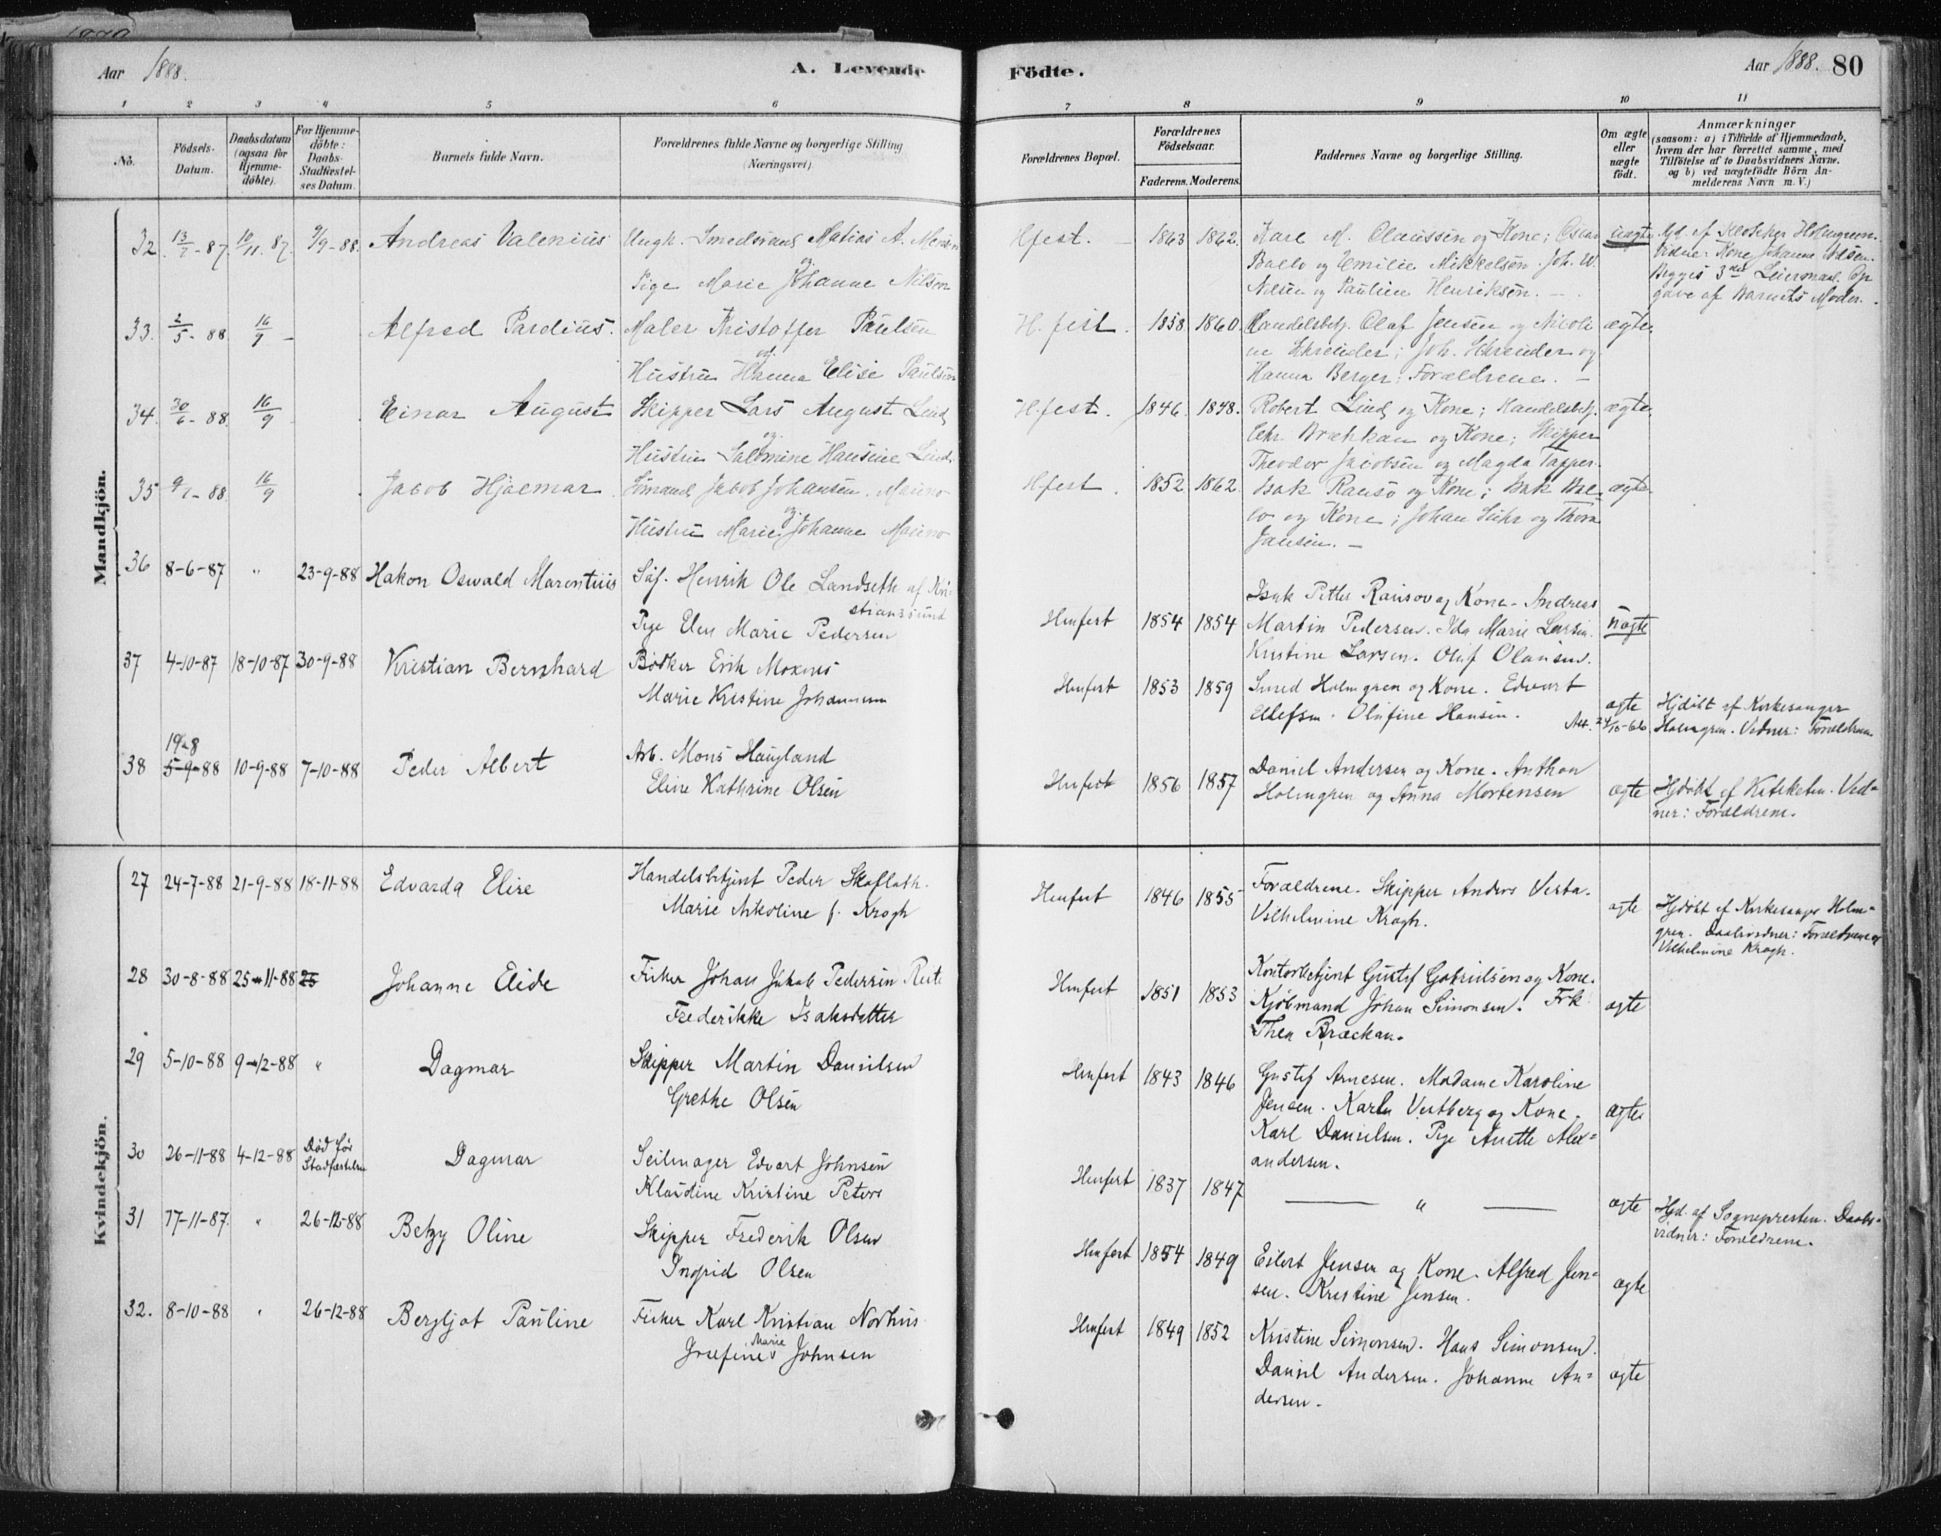 Aar 1888.
A. Levende
Födte.
Aar 1888. 80
1 2 3 4 5 6 7 8 9 10 11
No.
Födsels-
Datum.
Daabsdatum
(ogsaa for
Hjemme-
döbte).
For Hjemme-
döbte:
Daabs-
Stadfæstel-
ses Datum.
Barnets fulde Navn.
Forældrenes fulde Navne og borgerlige Stilling
(Næringsvei).
Forældrenes Bopæl.
Forældrenes
Födselsaar.
Faderens. Moderens.
Faddernes Navne og borgerlige Stilling.
Om ægte
eller
uægte
født.
Anmærkninger
(saasom: a) i Tilfælde af Hjemmedaab,
hvem der har forrettet samme, med
Tilföielse af to Daabsvidners Navne,
og b) ved uægtefödte Börn An-
melderens Navn m. V.)
Mandkjön.
32. 13/7-87. 10/11.87. 9/9-88. Andreas Valenius Ungk. Smedsvend Matias A.
og
Pige Marie Johanne Nilsen
Hfest. 1863 1862. Karl M. Claussen og Kone; Oscar
Ballo og Emilie Mikkelsen. Joh. W.
Nilsen og Pauline Henriksen.
uægte Hjd. af Klokker Holmgreen.
Vidner: Kone Johanne Nilsen.
Begges 3die Leiermaal. Op
gave af Barnets Moder.
33. 2/5-88 16/9 - Alfred Pardius. Maler Kristoffer Paulsen
og
Hustru Hanna Elise Paulsen
H.fest. 1858 1860. Handelsbetj. Olaf Jensen og Nicoli
ne Schreuder; Joh. Schreuder og
Hanna Berger; Forældrene.
ægte.
34. 30/6-88. 16/9 Einar August Skipper Lars August Lind
og
Hustru Salomine Hansine Lind.
H.fest. 1846. 1848. Robert Lind og Kone; Handelsbetj.
Chr. Brækkan og Kone; Skipper
Theodor Jacobsen og Magda Tapper.
ægte.
35 9/1-88. 16/9 Jacob Hjalmar. Sömand Jakob Johansen
og
Hustru Marie Johanne
Hfest. 1852 1862. Isak Rausö og Kone; Isak
og Kone; Johan Suhr og Thora
Jansen.
ægte
36 8-6-87 " 23-9-88 Hakon Oswald Marentius Söf. Henrik Ole Landseth af Kri-
stianssund
Pige Elen Marie Pedersen
Hmfest 1854 1854 Isak Petter Rausov og Kone. Andreas
Martin Pedersen. Ida Marie Larsen.
Kristine Larsen. Oluf Olausen.
uægte
37 4-10-87 18-10-87 30-9-88 Kristian Bernhard Bödker Erik Moxnes
Marie Kristine Johannesen
Hmfest 1853 1859 Smed Holmgren og Kone. Edvart
Ellefsen. Olufine Hansen.
ægte Hjdöbt af Kirkesanger
Holmgren. Vidner: Forældrene
38 19-8
5-9-88 10-9-88 7-10-88 Peder Albert Arb. Mons Haugland
Eline Kathrine Olsen
Hmfest 1856 1857 Daniel Andersen og Kone. Anthon
Holmgren og Anna Mortensen
ægte Hjdöbt af Kateketen. Vid-
ner: Forældrene.
Kvindekjön.
27 24-7-88 21-9-88 18-11-88 Edvarda Elise Handelsbetjent Peder Skafloth.
Marie Nikoline f. Krogh
Hmfest 1846 1855 Forældrene. Skipper Anders Vesta.
Vilhelmine Krogh.
ægte Hjdöbt af Kirkesanger Holm-
gren. Daabsvidner: Forældrene og
Vilhelmine Krogh.
28 30-8-88 25-11-88 25 Johanne Elide Fisker Johan Jakob Pedersen
Frederikke Isaksdatter
Hmfest 1851 1853 Kontorbetjent Gustef Gabrielsen og Kone.
Kjöbmand Johan Simonsen. Frk
Thea Bræckan.
ægte
29 5-10-88 9-12-88 " Dagmar Skipper Martin Danielsen
Grethe Olsen
Hmfest 1843 1846 Gustef Arnesen. Madame Karoline
Jensen. Karl Vestberg og Kone.
Karl Danielsen. Pige Anette Alex-
andersen.
ægte
30 26-11-88 4-12-88 Död før
Stadfæstelsen Dagmar Seilmager Edvart Johnsen
Klaudine Kristine Peters
Hmfest 1837 1847 — " — ægte Hjd. af Sognepresten. Daabs-
vidner: Forældrene.
31 17-11-87. " 26-12-88 Betzy Oline Skipper Frederik Olsen
Ingrid Olsen
Hmfest 1854 1849 Eilert Jensen og Kone. Alfred Jen-
sen. Kristine Jensen.
ægte
32. 8-10-88 " 26-12-88 Bergljot Pauline Fisker Karl Kristian Norhus
Marie
Josefine Johnsen
Hmfest 1849 1852 Kristine Simonsen. Hans Simonsen.
Daniel Andersen. Johanne An-
dersen.
ægte